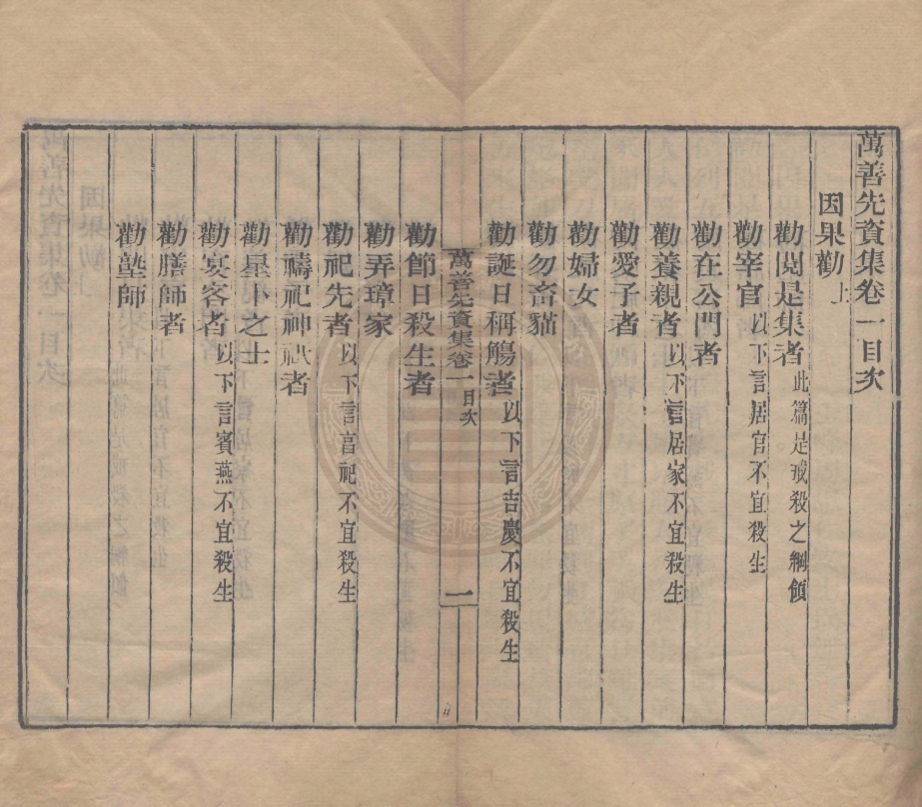 萬善先資集卷一目次
因果勸上
勸閱是集者此篇是戒殺之綱領
勸宰官以下言居官不宜殺生
勸在公門者
勸養親者以下言居家不宜殺生
勸愛子者
勸婦女
勸勿畜貓
勸誕日稱觴者以下言吉慶不宜殺生
萬善先資集卷一目次
一
勸節日殺生者
勸弄璋家
勸祀先者以下言享祀不宜殺生
勸禱祀神祇者
勸星卜之士
勸宴客者以下言賓燕不宜殺生
勸膳師者
勸塾師